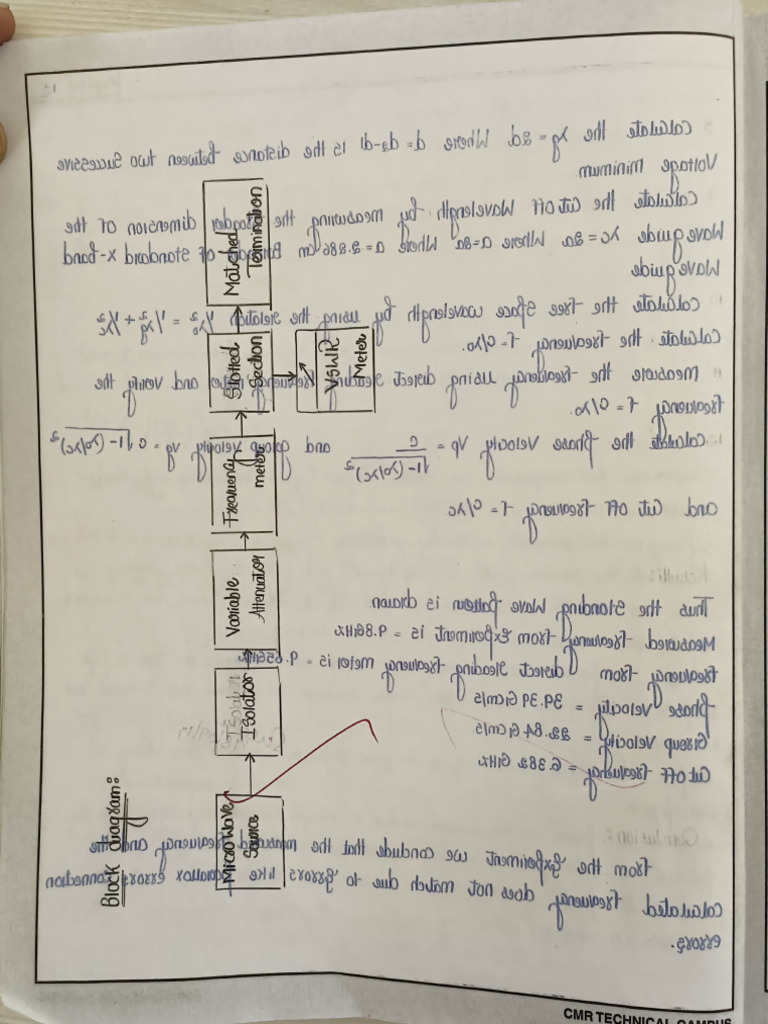 Block diagram:
MicroWave Source
Isolation
Variable Attenuator
Frequency meter
Slotted Section
VSWR Meter
Matched Termination
Calculate the λg = 2d. Where d = d2-d1 is the distance between two Successive
Voltage minimum
Calculate the Cut off Wavelength by measuring the dimension of the
Wave guide λc = 2a Where a = 2.286 cm of Standard x-band
Wave guide
Calculate the free space wavelength by using the relation 1/λo² = 1/λg² + 1/λc²
Calculate the frequency f = c/λo.
measure the frequency using direct reading frequency and verify the
frequency f = c/λo.
Calculate the phase velocity Vp = c/√1-(λo/λc)² and group velocity vg = c√1-(λo/λc)²
and Cut off frequency f = c/λc
Results:
Thus the Standing Wave pattern is drawn
Measured frequency from Experiment is = 9.8GHz
frequency from direct reading frequency meter is = 9.656GHz
phase velocity = 39.39 G cm/s
Group velocity = 22.84 G cm/s
Cut off frequency = 6.382 GHz
Conclusion:
from the Experiment we conclude that the measured frequency and the
calculated frequency does not match due to errors like errors, connection
errors.
CMR TECHNICAL CAMPUS